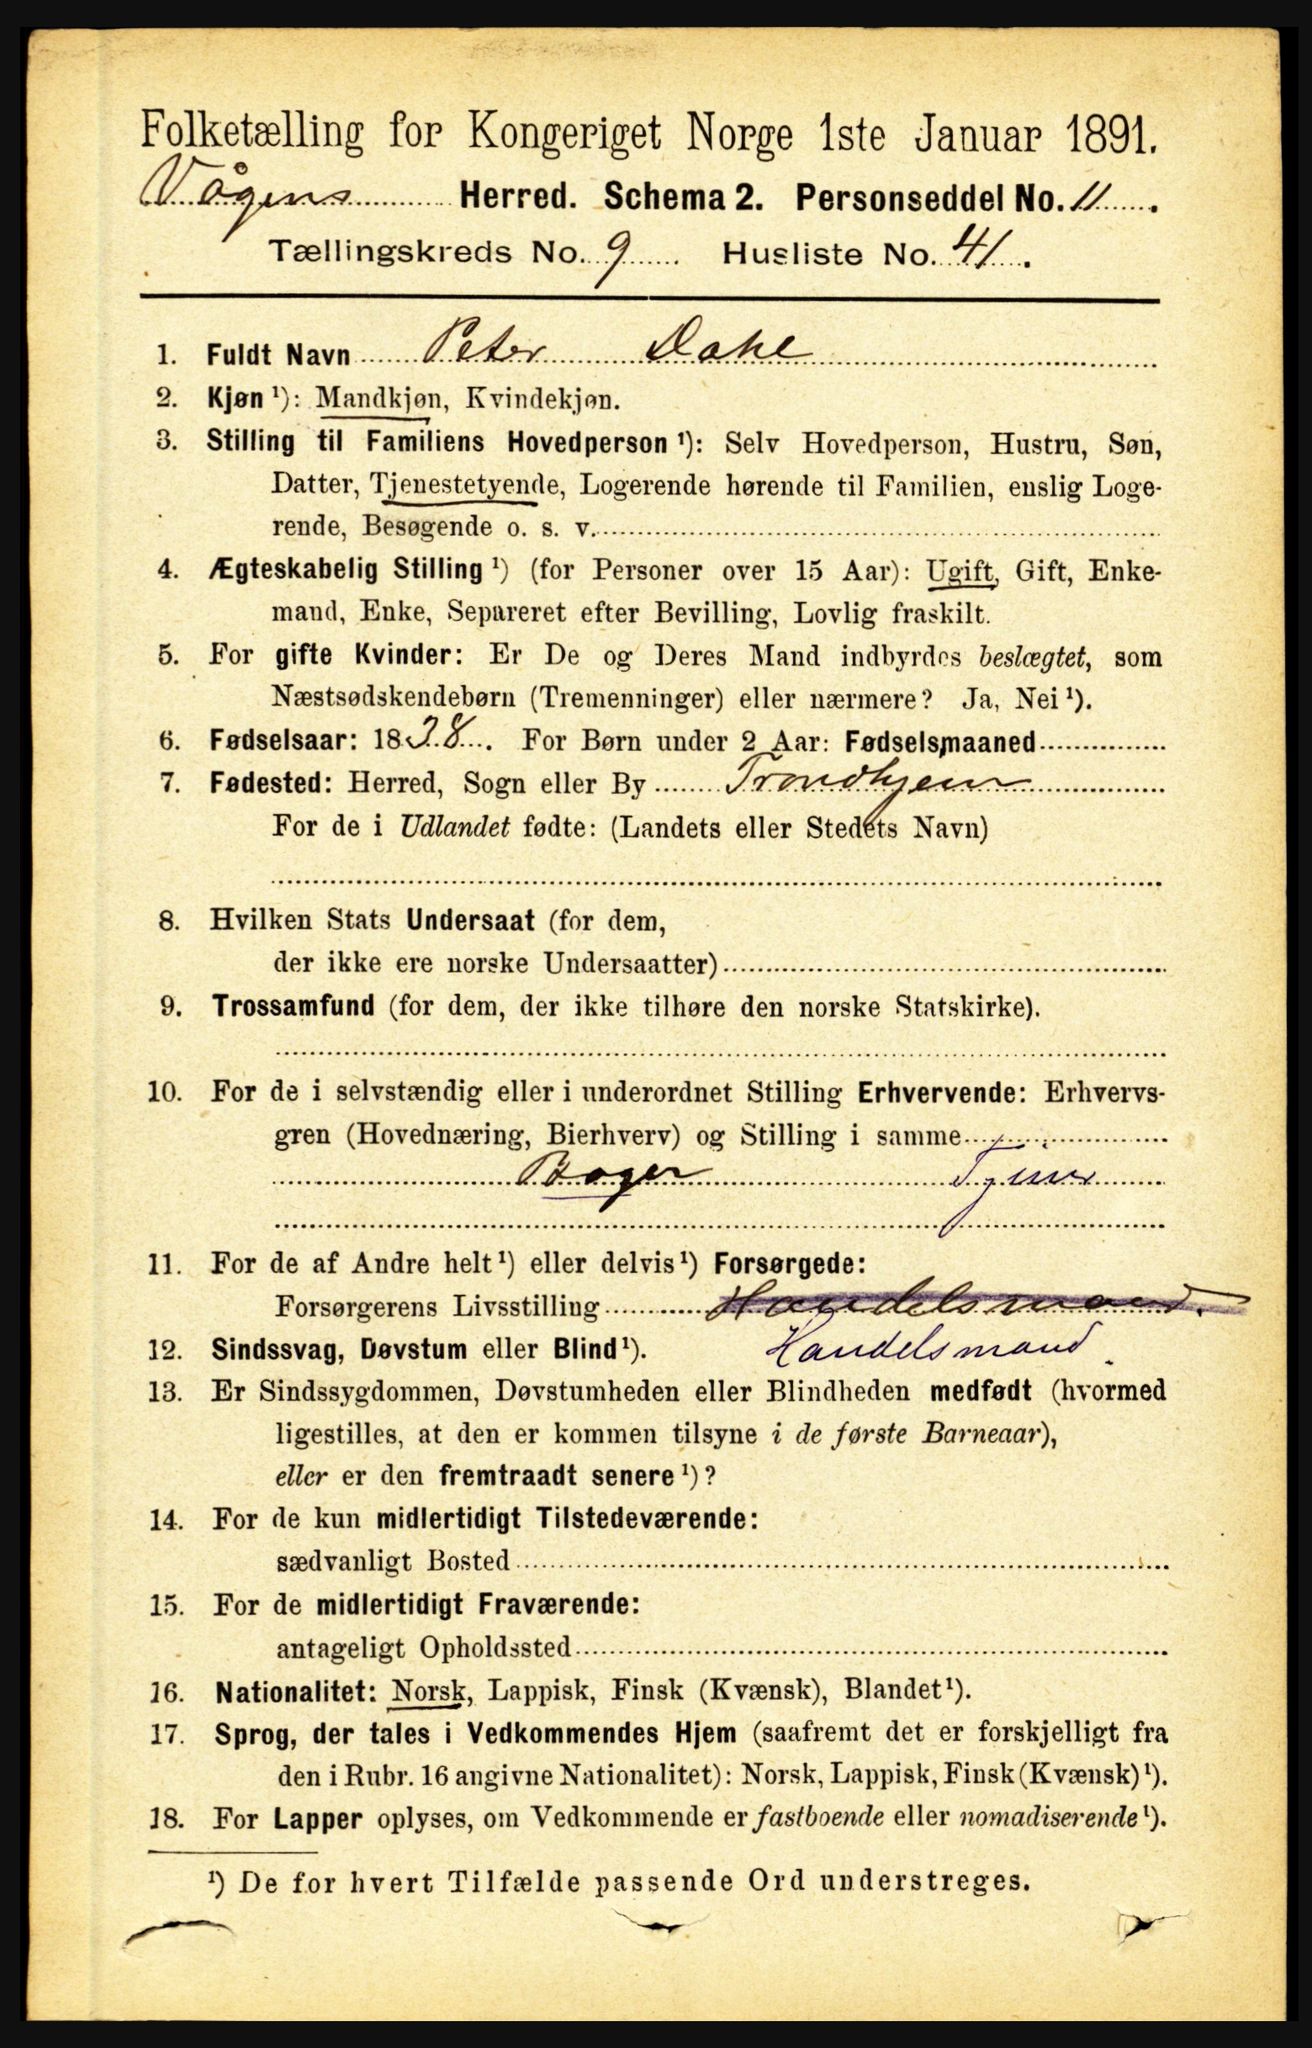 Folketælling for Kongeriget Norge 1ste Januar 1891.
Vågens Herred. Schema 2. Personseddel No. 11.
Tællingskreds No. 9 Husliste No. 41.
1. Fuldt Navn Peter Dahl
2. Kjøn ¹): Mandkjøn, Kvindekjøn.
3. Stilling til Familiens Hovedperson ¹): Selv Hovedperson, Hustru, Søn,
Datter, Tjenestetyende, Logerende hørende til Familien, enslig Loge-
rende, Besøgende o. s. v.
4. Ægteskabelig Stilling ¹) (for Personer over 15 Aar): Ugift, Gift, Enke-
mand, Enke, Separeret efter Bevilling, Lovlig fraskilt.
5. For gifte Kvinder: Er De og Deres Mand indbyrdes beslægtet, som
Næstsødskendebørn (Tremenninger) eller nærmere? Ja, Nei ¹).
6. Fødselsaar: 1838. For Børn under 2 Aar: Fødselsmaaned
7. Fødested: Herred, Sogn eller By Trondhjem
For de i Udlandet fødte: (Landets eller Stedets Navn)
8. Hvilken Stats Undersaat (for dem,
der ikke ere norske Undersaatter)
9. Trossamfund (for dem, der ikke tilhøre den norske Statskirke).
10. For de i selvstændig eller i underordnet Stilling Erhvervende: Erhvervs-
gren (Hovednæring, Bierhverv) og Stilling i samme
Bager Tjener
11. For de af Andre helt ¹) eller delvis ¹) Forsørgede:
Forsørgerens Livsstilling Handelsmand.
12. Sindssvag, Døvstum eller Blind ¹). Handelsmand
13. Er Sindssygdommen, Døvstumheden eller Blindheden medfødt (hvormed
ligestilles, at den er kommen tilsyne i de første Barneaar),
eller er den fremtraadt senere ¹)?
14. For de kun midlertidigt Tilstedeværende:
sædvanligt Bosted
15. For de midlertidigt Fraværende:
antageligt Opholdssted
16. Nationalitet: Norsk, Lappisk, Finsk (Kvænsk), Blandet ¹).
17. Sprog, der tales i Vedkommendes Hjem (saafremt det er forskjelligt fra
den i Rubr. 16 angivne Nationalitet): Norsk, Lappisk, Finsk (Kvænsk) ¹).
18. For Lapper oplyses, om Vedkommende er fastboende eller nomadiserende ¹).
¹) De for hvert Tilfælde passende Ord understreges.